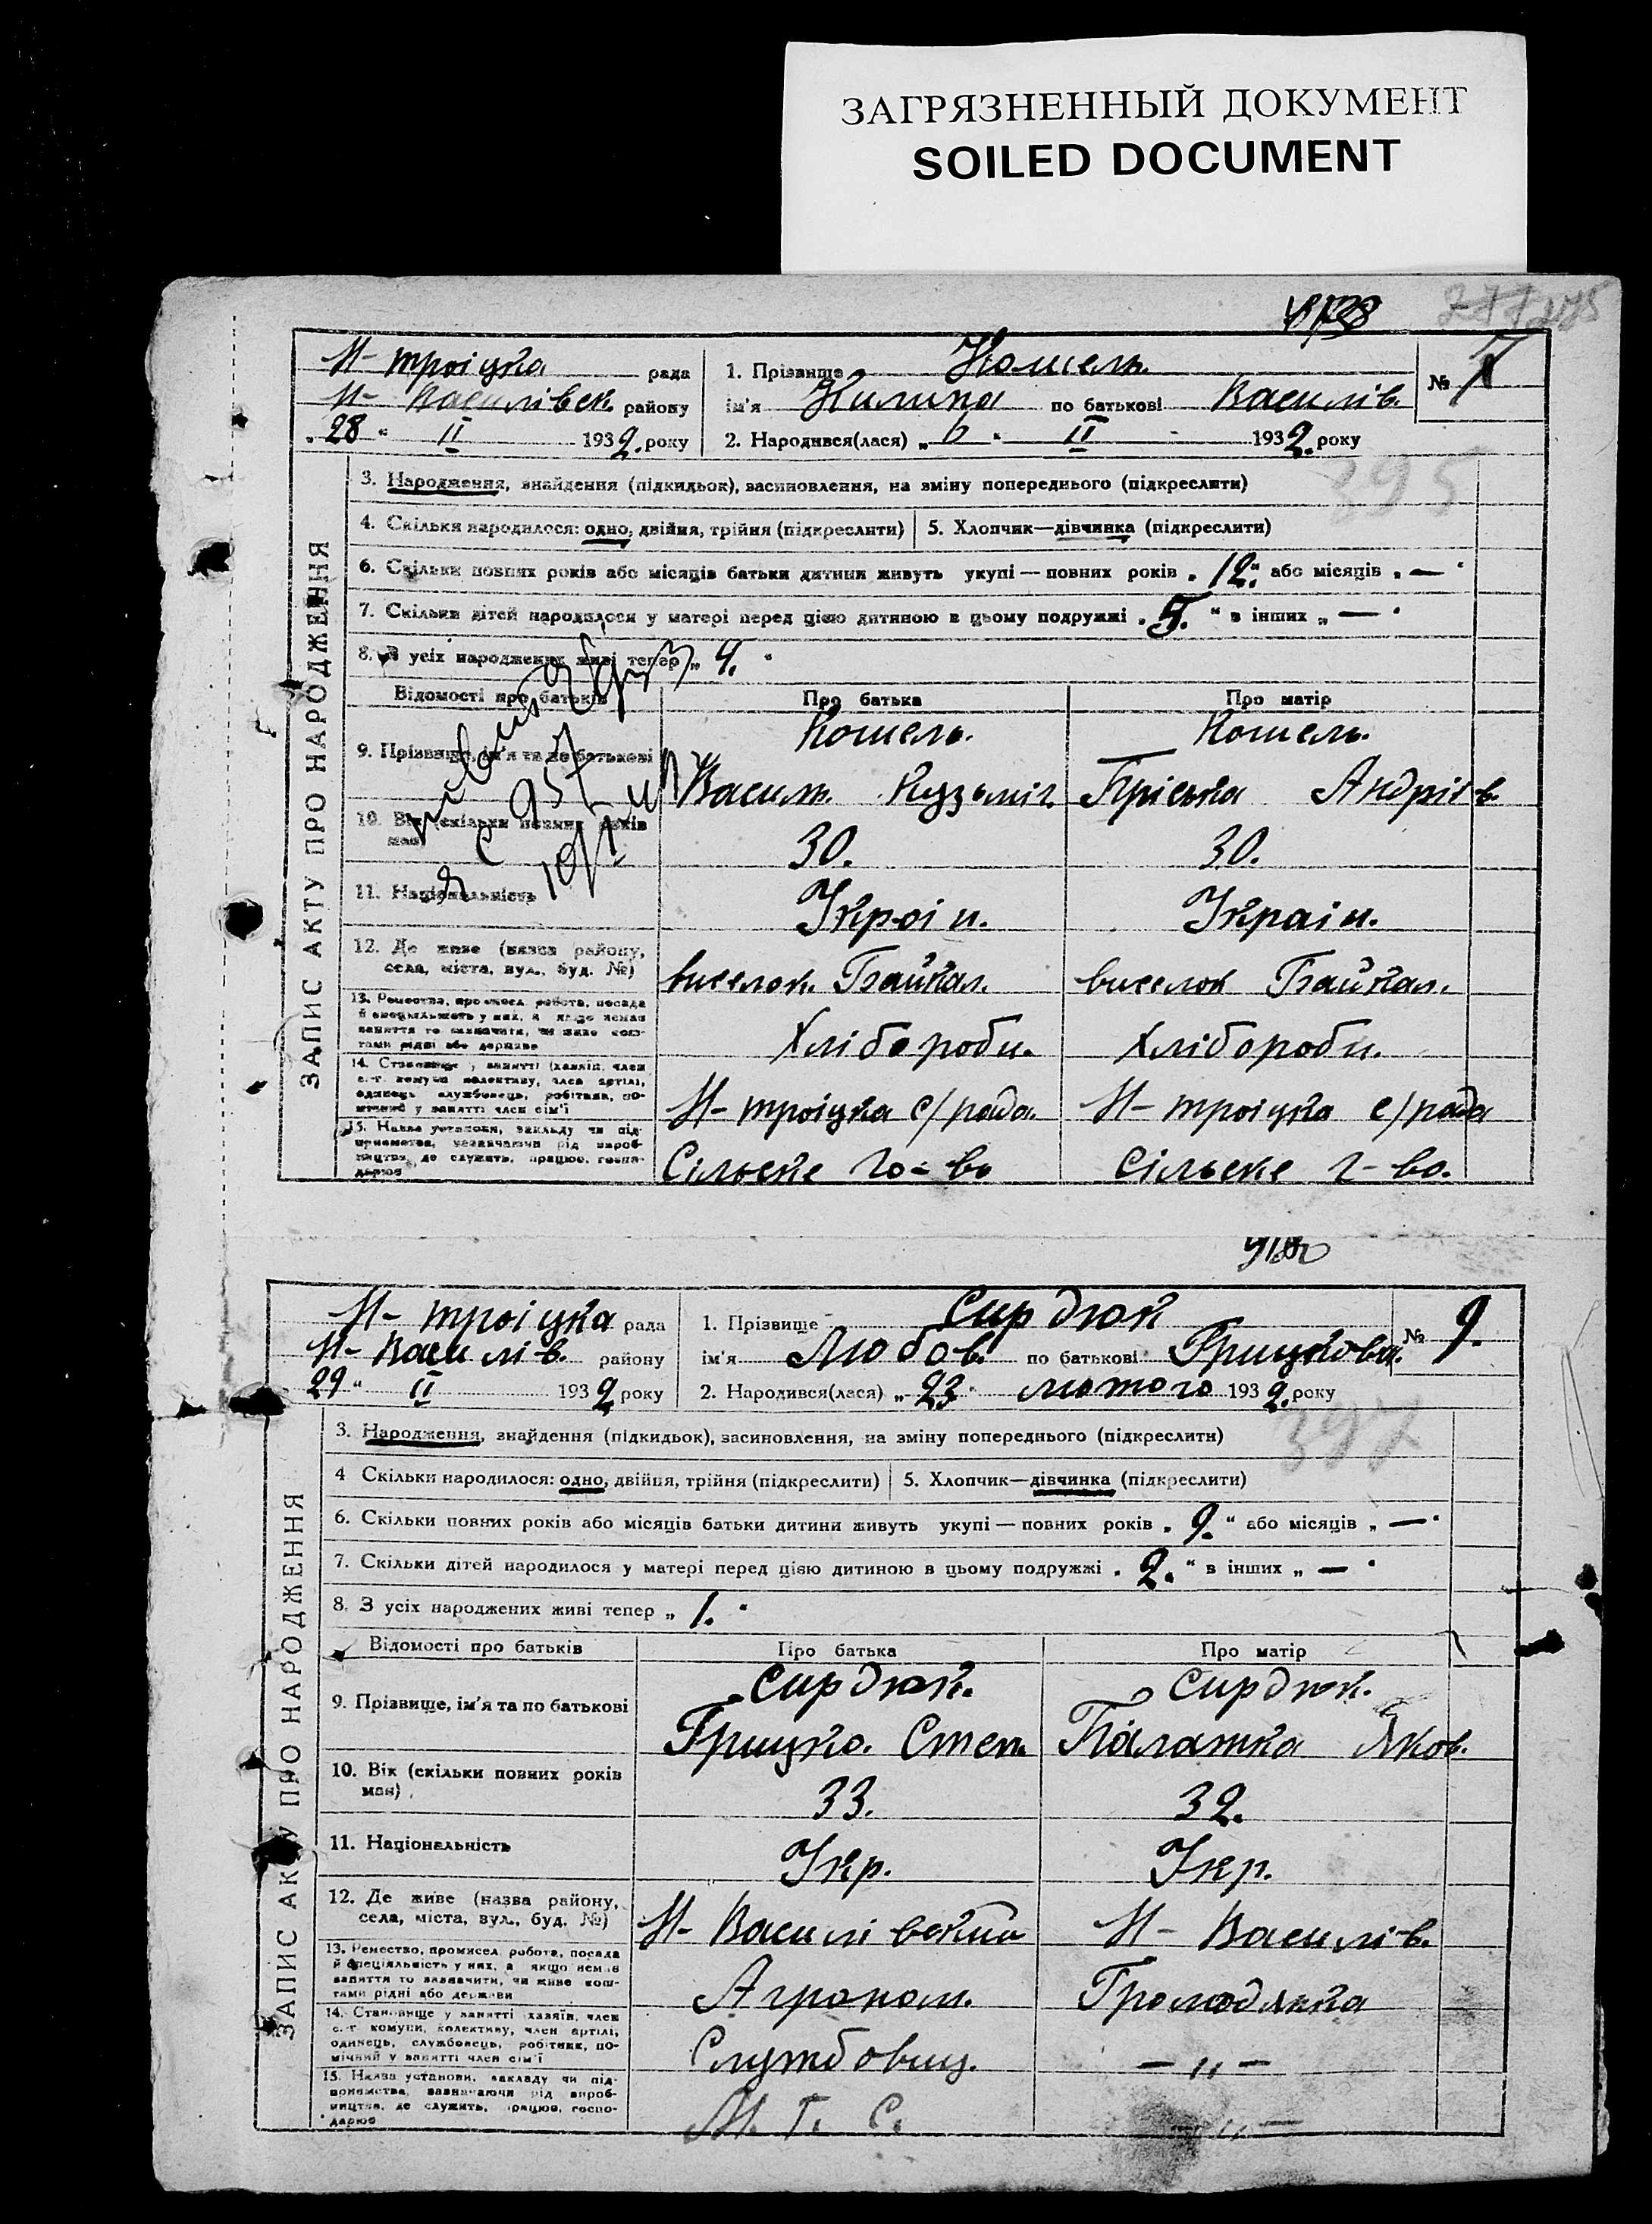 ЗАГРЯЗНЕННЫЙ ДОКУМЕНТ
SOILED DOCUMENT
ЗАПИС АКТУ ПРО НАРОДЖЕННЯ
Н-троіцка рада
Н- Василівск. району
„28" II 1932. року
1. Прізвище Кошель.
ім'я Килина по батькові Василів.
2. Народився(лася) „6" II 1932. року
№ 7
395
3. Народження, знайдення (підкидьок), засиновлення, на зміну попереднього (підкреслити)
4. Скільки народилося: одно, двійня, трійня (підкреслити) 5. Хлопчик—дівчинка (підкреслити)
6. Скільки повних років або місяців батьки дитини живуть укупі — повних років „12." або місяців „—"
7. Скільки дітей народилося у матері перед цією дитиною в цьому подружжі „5." в інших „—"
8. З усіх народжених живі тепер „4."
Відомості про батьків Про батька Про матір
9. Прізвище, ім'я та по батькові
Кошель. Кошель.
Василь Кузьміч Пріська Андріів.
10. Вік (скільки повних років має)
30. 30.
11. Національність
Украін. Украін.
12. Де живе (назва району, села, міста, вул., буд. №)
виселок. Байкал. виселок Байкал.
13. Ремество, промисел, робота, посада й спеціяльність у них, а якщо немає заняття то зазначити, чи живе коштами рідні або держави
Хлібороби. Хлібороби.
14. Становище у занятті (хазяїн, член с.-г. комуни, колективу, член артілі, одинець, службовець, робітник, помічний у занятті член сім'ї
Н-троіцка с/рада. Н-троіцка с/рада
15. Назва установи, закладу чи підприємства, зазначаючи рід виробництва, де служить, працює, господарює
Сільске го-во Сільске г-во.
ЗАПИС АКТУ ПРО НАРОДЖЕННЯ
Н-троіцка рада
Н-Василів. району
29" II 1932 року
1. Прізвище Сирдюк
ім'я Любов. по батькові Грицкова.
2. Народився(лася) „23" лютого 1932. року
№ 9.
397
3. Народження, знайдення (підкидьок), засиновлення, на зміну попереднього (підкреслити)
4 Скільки народилося: одно, двійня, трійня (підкреслити) 5. Хлопчик—дівчинка (підкреслити)
6. Скільки повних років або місяців батьки дитини живуть укупі — повних років „9." або місяців „—"
7. Скільки дітей народилося у матері перед цією дитиною в цьому подружжі „2." в інших „—"
8. З усіх народжених живі тепер „1."
Відомості про батьків Про батька Про матір
9. Прізвище, ім'я та по батькові
Сирдюк. Сирдюк.
Грицко. Степ. Палажка Яков.
10. Вік (скільки повних років має)
33. 32.
11. Національність
Укр. Укр.
12. Де живе (назва району, села, міста, вул., буд. №)
Н-Василівка Н-Василів.
13. Ремество, промисел, робота, посада й спеціяльність у них, а якщо немає заняття то зазначити, чи живе коштами рідні або держави
Агроном. Громодянка
14. Становище у занятті хазяїн, член с.-г. комуни, колективу, член артілі, одинець, службовець, робітник, помічний у занятті член сім'ї
Службовиц. — „ —
15. Назва установи, закладу чи підприємства, зазначаючи рід виробництва, де служить, працює, господарює
М. Т. С. — „ —